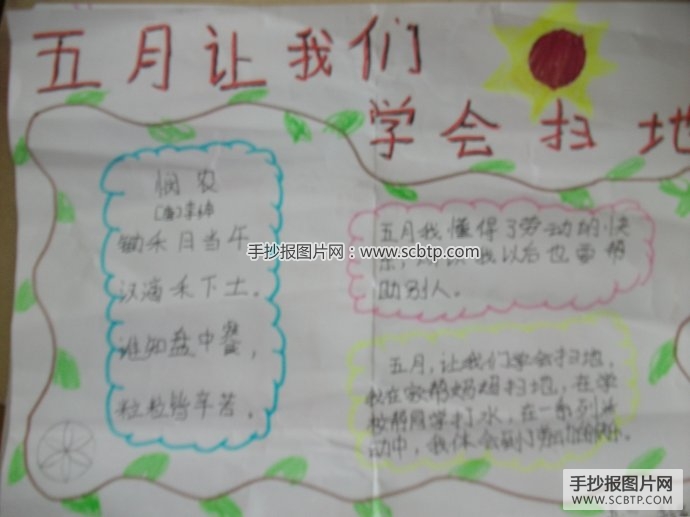 五月让我们
学会扫地
悯农
(唐)李绅
锄禾日当午
汗滴禾下土。
谁知盘中餐，
粒粒皆辛苦。
五月我懂得了劳动的快
乐，所以我以后也要帮
助别人。
五月，让我们学会扫地，
我在家帮妈妈扫地，在学
校帮同学打水，在一系列活
动中，我体会到了劳动的快乐。
手抄报图片网：www.scbtp.com
手抄报图片网
www.SCBTP.com